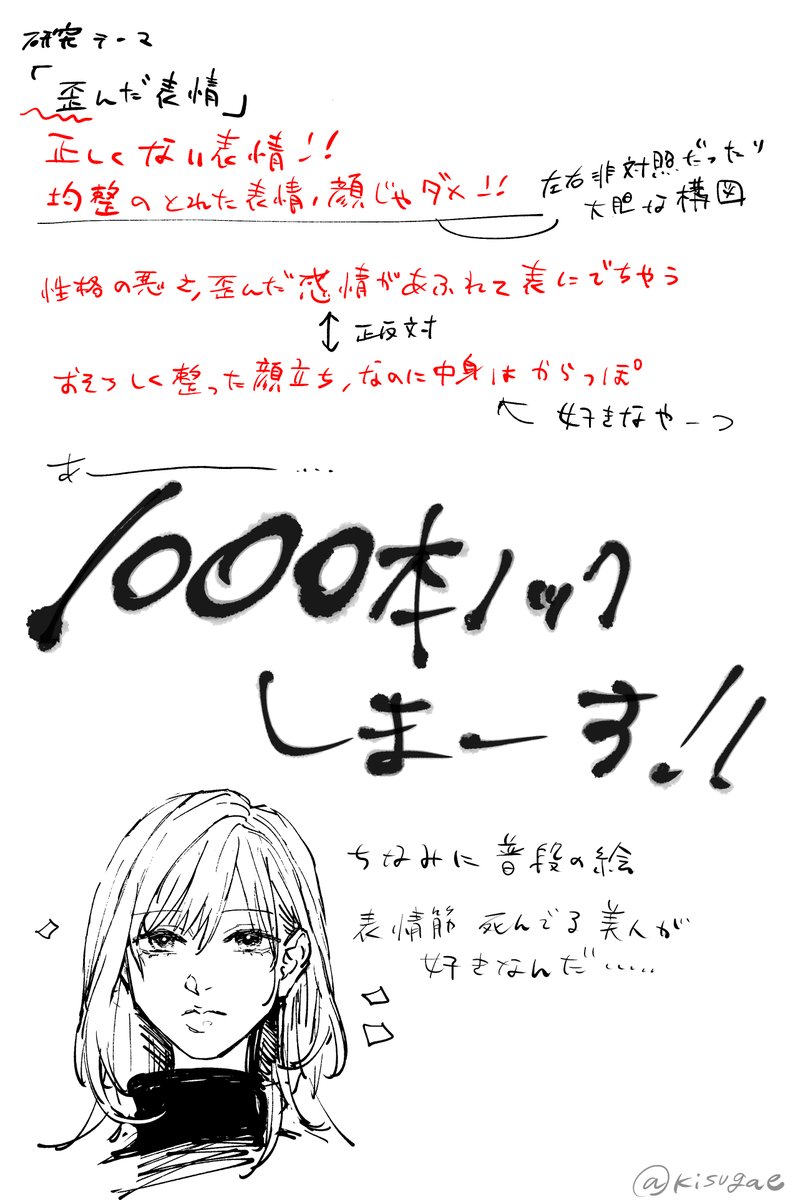 研究テーマ
「歪んだ表情」
正しくない表情!!
均整のとれた表情、顔じゃダメ!!
左右非対照だったり
大胆な構図
性格の悪さ、歪んだ感情があふれて表にでちゃう
↕ 正反対
おそろしく整った顔立ち、なのに中身はからっぽ
↖ 好きなやーつ
あー ‥‥
1000本ノック
しまーす!!
ちなみに普段の絵
表情筋死んでる美人が
好きなんだ……
@kisugae